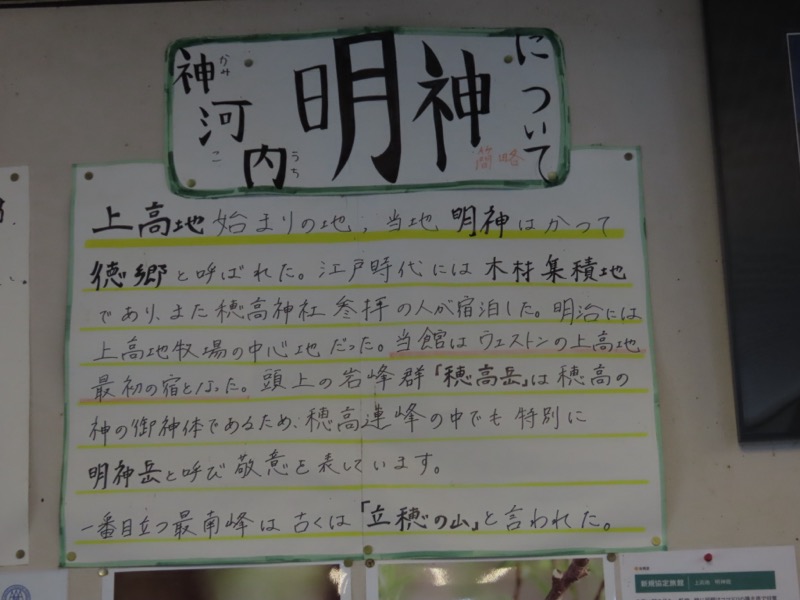 神河内
かみ
こ
うち
明神
について
簡略
上高地始まりの地，当地明神はかつて
徳郷と呼ばれた。江戸時代には木材集積地
であり、また穂高神社参拝の人が宿泊した。明治には
上高地牧場の中心地だった。当館はウェストンの上高地
最初の宿となった。頭上の岩峰群「穂高岳」は穂高の
神の御神体であるため、穂高連峰の中でも特別に
明神岳と呼び敬意を表しています。
一番目立つ最南峰は古くは「立穂の山」と言われた。
新規協定旅館
上高地 明神館